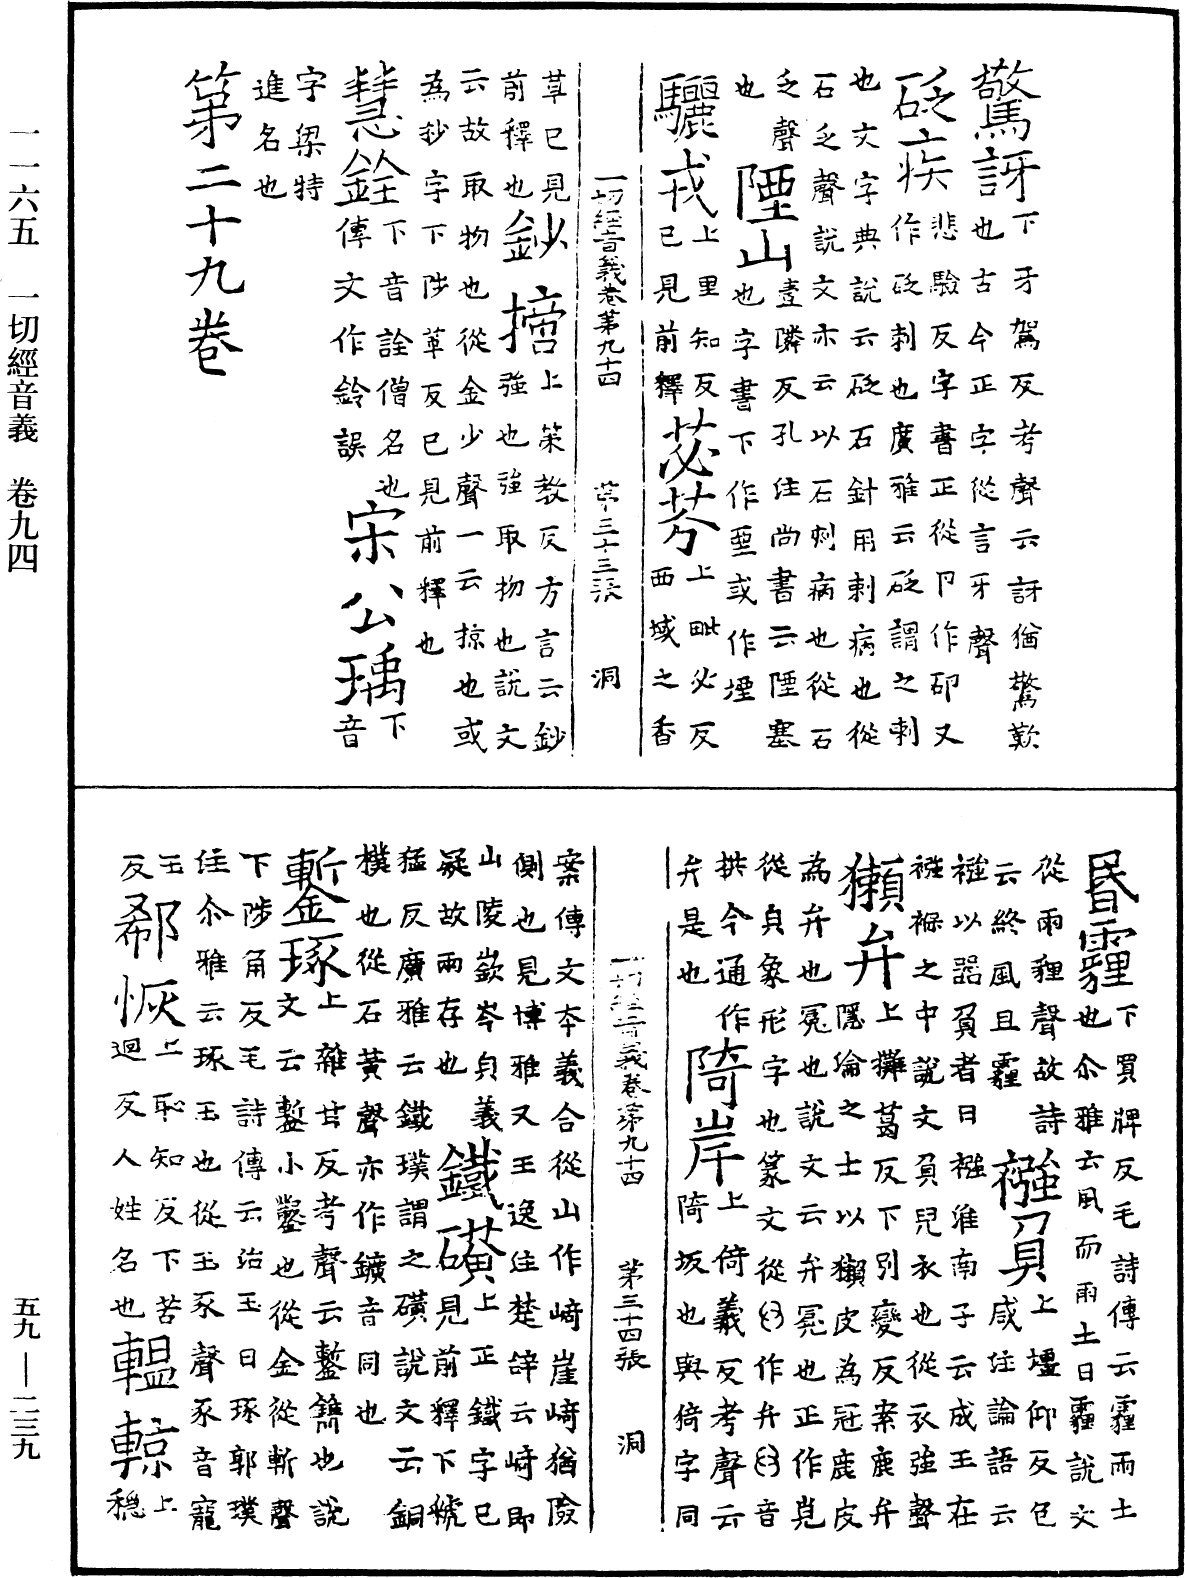 驚訝下牙駕反考聲云訝猶驚歎
也古今正字從言牙聲
砭疾悲驗反字書正從卪作䂡又
作砭刺也廣雅云砭謂之刺
也文字典說云砭石針用刺病也從
石乏聲說文亦云以石刺病也從石
乏聲
也
陻山壹隣反孔注尚書云陻塞
也字書下作垔或作堙
驪戎上里知反
已見前釋
苾芬上毗必反
西域之香
一切經音義卷第九十四 第三十三張 洞
草已見
前釋也
鈔上策教反方言云鈔
強也強取物也說文
云故取物也從金少聲一云掠也或
為抄字下陟革反已見前釋也
慧銓下音詮僧名也
傳文作鈴誤
宋公瑀下
音
字梁特
進名也
第二十九卷
昬霾下買牌反毛詩傳云霾雨土
也尒雅云風而雨土曰霾說文
從雨貍聲故詩
云終風且霾
襁負上壃仰反包
咸注論語云
襁以器負者曰襁淮南子云成王在
襁褓之中說文負兒衣也從衣強聲
獺弁上攤葛反下別變反案鹿弁
隱淪之士以獺皮為冠鹿皮
為弁也冕也說文云弁冕也正作㝸
從皃象形字也篆文從𦥑作弁𦥑音
拱今通作
弁是也
陭岸上倚義反考聲云
陭坂也與倚字同
一切經音義卷第九十四 第三十四張 洞
案傳文本義合從山作崎崖崎猶險
側也見博雅又王逸注楚辭云崎即
山陵嶔岑皃義
疑故兩存也
鐵磺上正鐵字已
見前釋下虢
猛反廣雅云鐵璞謂之磺說文云銅
樸也從石黃聲亦作鑛音同也
鏨琢上雜甘反考聲云鏨鐫也說
文云鏨小鑿也從金從斬聲
下陟角反毛詩傳云治玉曰琢郭璞
注尒雅云琢玉也從玉豖聲豖音寵
玉
反
郗恢上恥知反下苦
迴反人姓名也
轀輬上
穩
一一六五 一切經音義 卷九四
五九—二三九